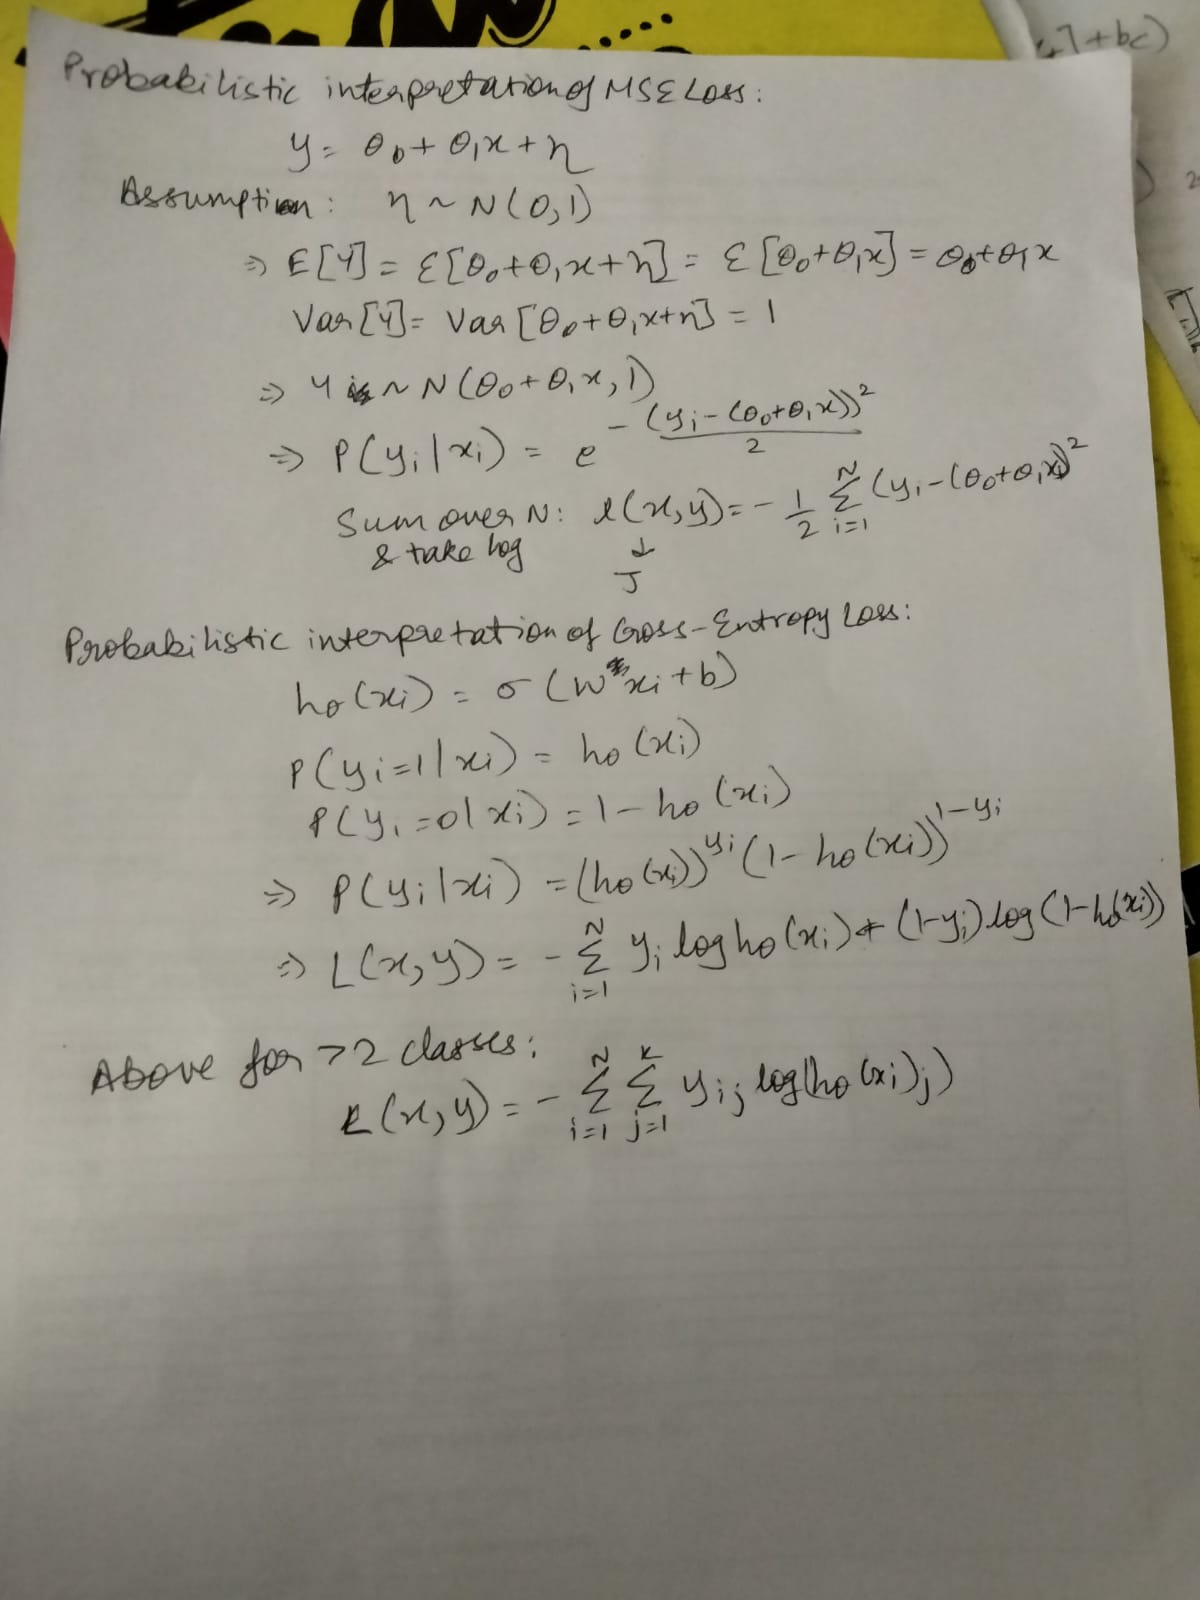 Probabilistic interpretation of MSE Loss:
y = θ₀ + θ₁x + η
Assumption: η ~ N(0,1)
⇒ E[Y] = E[θ₀+θ₁x+η] = E[θ₀+θ₁x] = θ₀+θ₁x
Var[Y] = Var[θ₀+θ₁x+η] = 1
⇒ Y ~ N(θ₀+θ₁x, 1)
⇒ P(yᵢ|xᵢ) = e^(-(yᵢ-(θ₀+θ₁x))²/2)
Sum over N: l(x,y) = -1/2 Σ_{i=1}^{N} (yᵢ-(θ₀+θ₁xᵢ))²
& take log ↓
J
Probabilistic interpretation of Cross-Entropy Loss:
h_θ(xᵢ) = σ(W xᵢ+b)
P(yᵢ=1|xᵢ) = h_θ(xᵢ)
P(yᵢ=0|xᵢ) = 1-h_θ(xᵢ)
⇒ P(yᵢ|xᵢ) = (h_θ(xᵢ))^{yᵢ} (1-h_θ(xᵢ))^{1-yᵢ}
⇒ L(x,y) = -Σ_{i=1}^{N} yᵢ log h_θ(xᵢ) + (1-yᵢ) log(1-h_θ(xᵢ))
Above for >2 classes:
L(x,y) = -Σ_{i=1}^{N} Σ_{j=1}^{K} yᵢⱼ log(h_θ(xᵢ)ⱼ)
+bc)